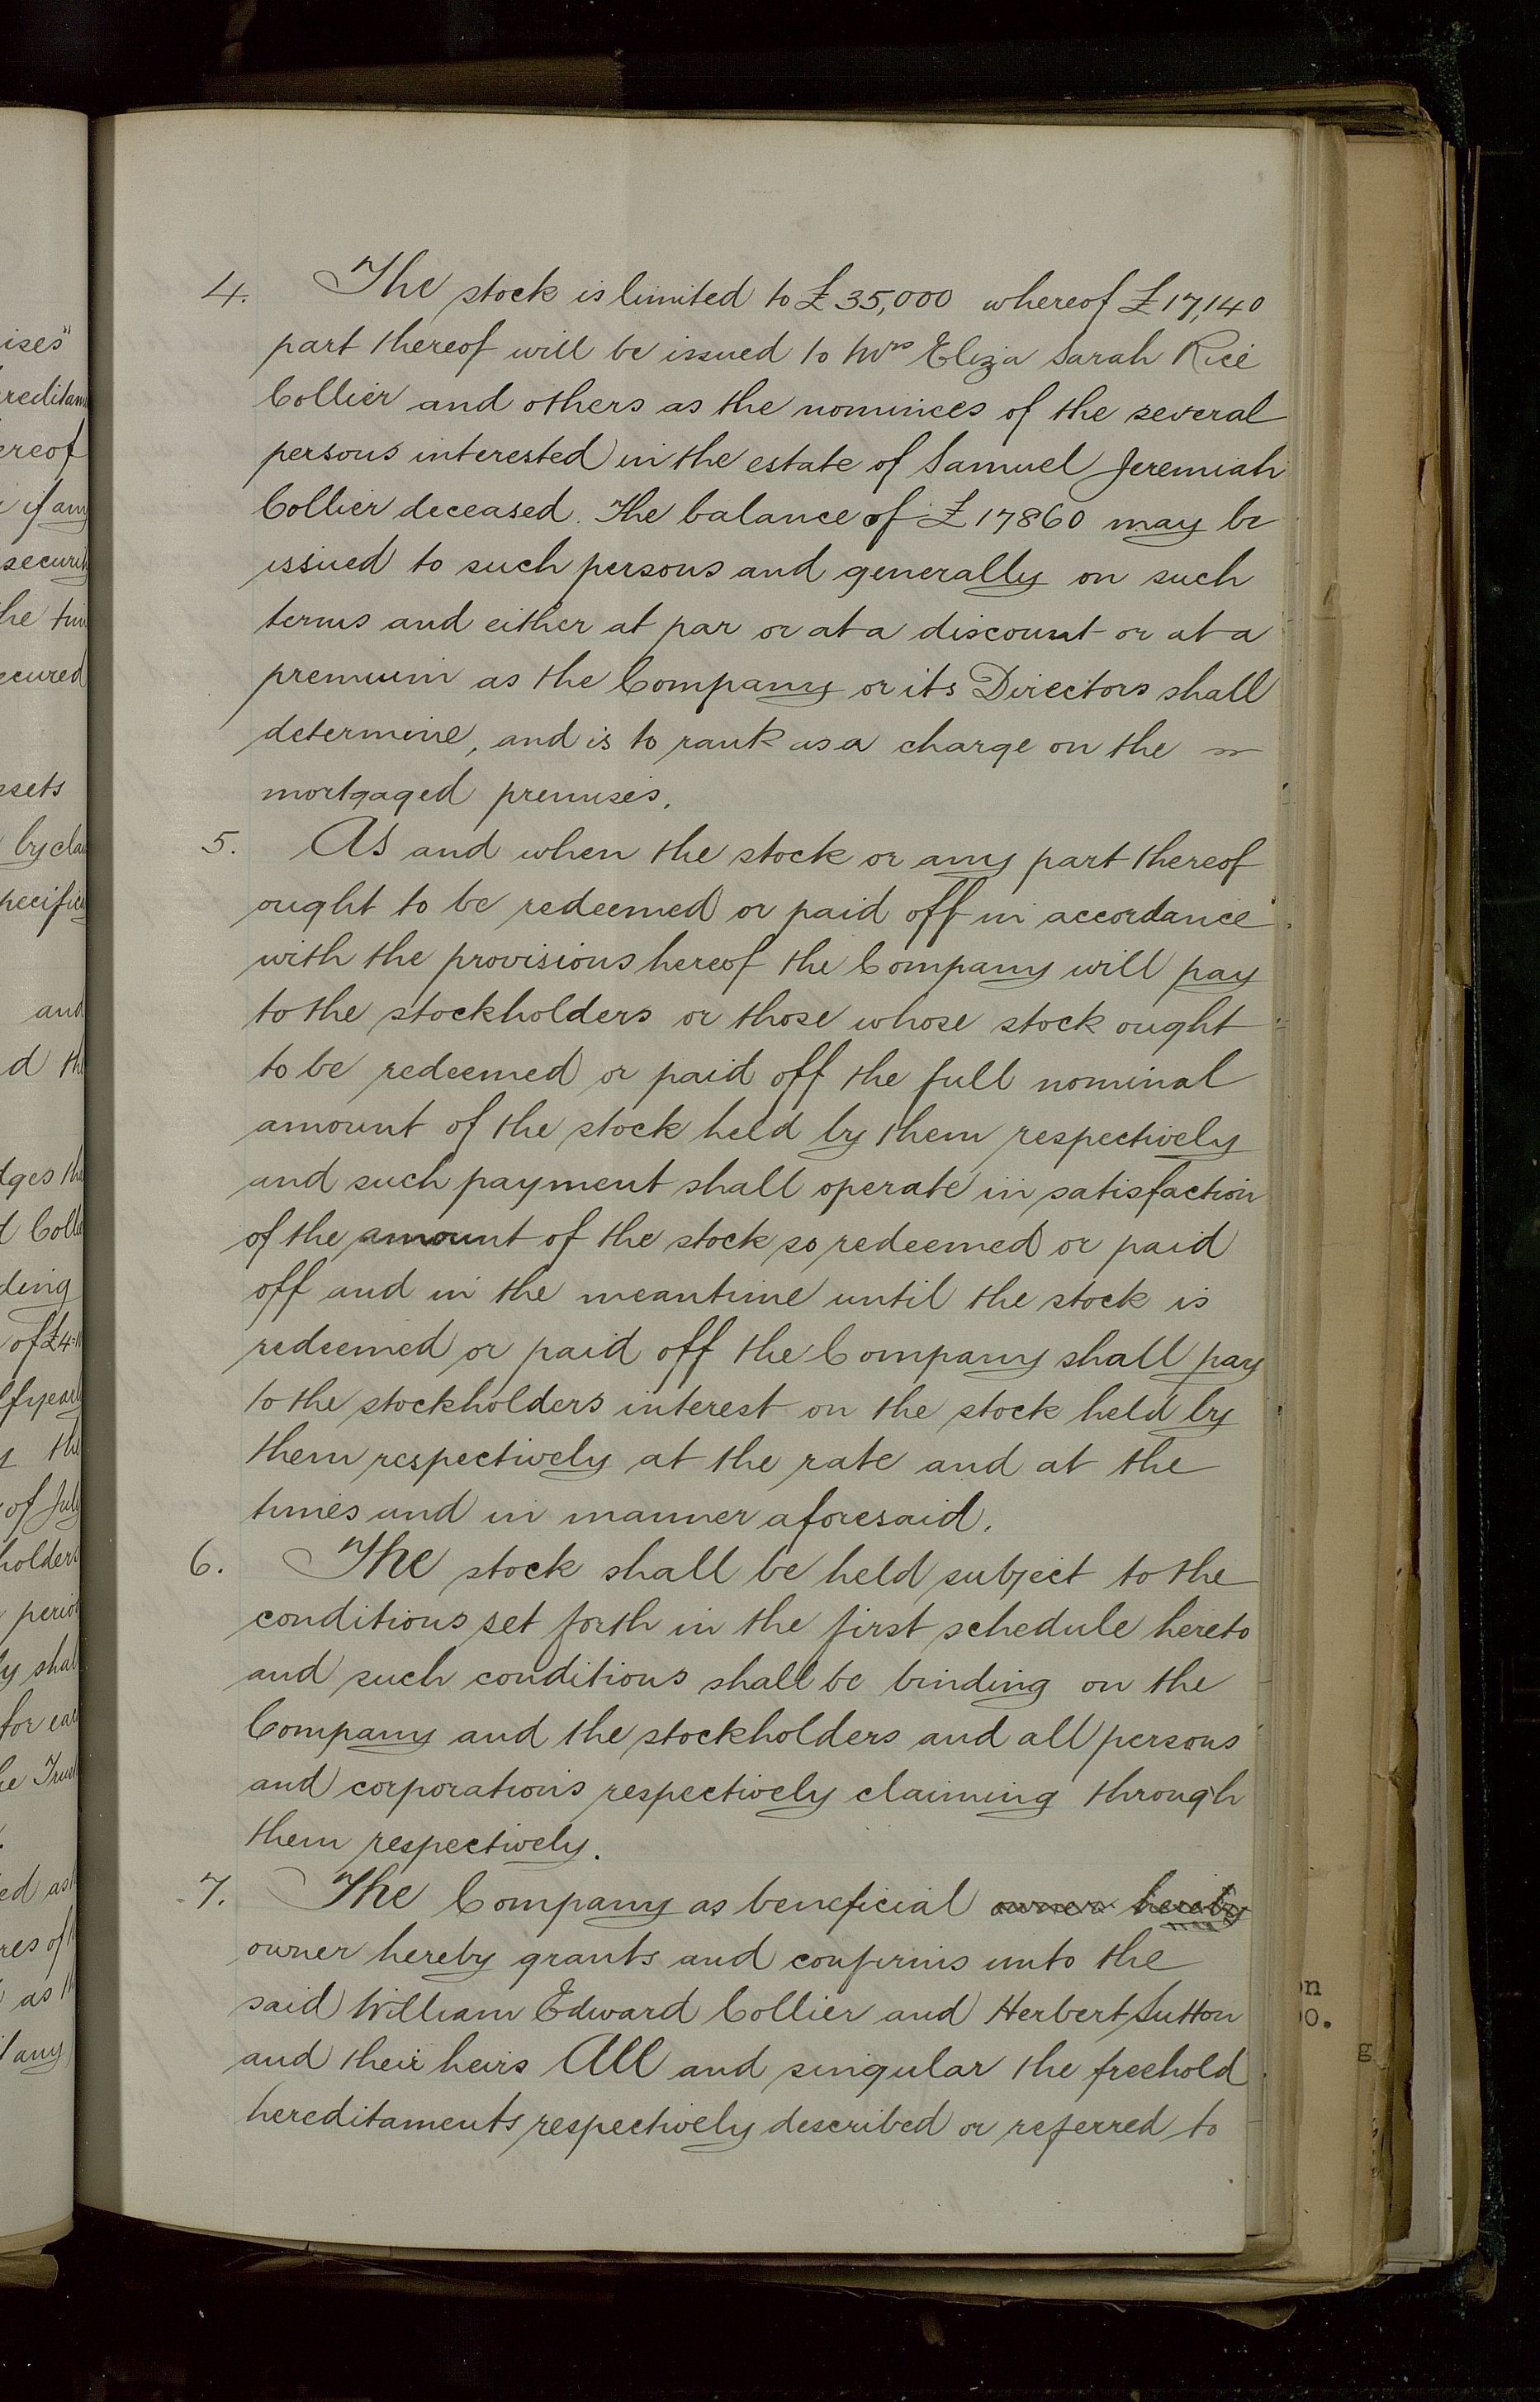 4. The stock is limited to £35,000 whereof £17,140
part thereof will be issued to Mrs Eliza Sarah Rice
Collier and others as the nominees of the several
persons interested in the estate of Samuel Jeremiah
Collier deceased. The balance of £17860 may be
issued to such persons and generally on such
terms and either at par or at a discount or at a
premium as the Company or its Directors shall
determine, and is to rank as a charge on the
mortgaged premises.
5. As and when the stock or any part thereof
ought to be redeemed or paid off in accordance
with the provisions hereof the Company will pay
to the stockholders or those whose stock ought
to be redeemed or paid off the full nominal
amount of the stock held by them respectively
and such payment shall operate in satisfaction
of the amount of the stock so redeemed or paid
off and in the meantime until the stock is
redeemed or paid off the Company shall pay
to the stockholders interest on the stock held by
them respectively at the rate and at the
times and in manner aforesaid.
6. The stock shall be held subject to the
conditions set forth in the first schedule hereto
and such conditions shall be binding on the
Company and the stockholders and all persons
and corporations respectively claiming through
them respectively.
7. The Company as beneficial owner hereby
owner hereby grants and confirms unto the
said William Edward Collier and Herbert Sutton
and their heirs All and singular the freehold
hereditaments respectively described or referred to